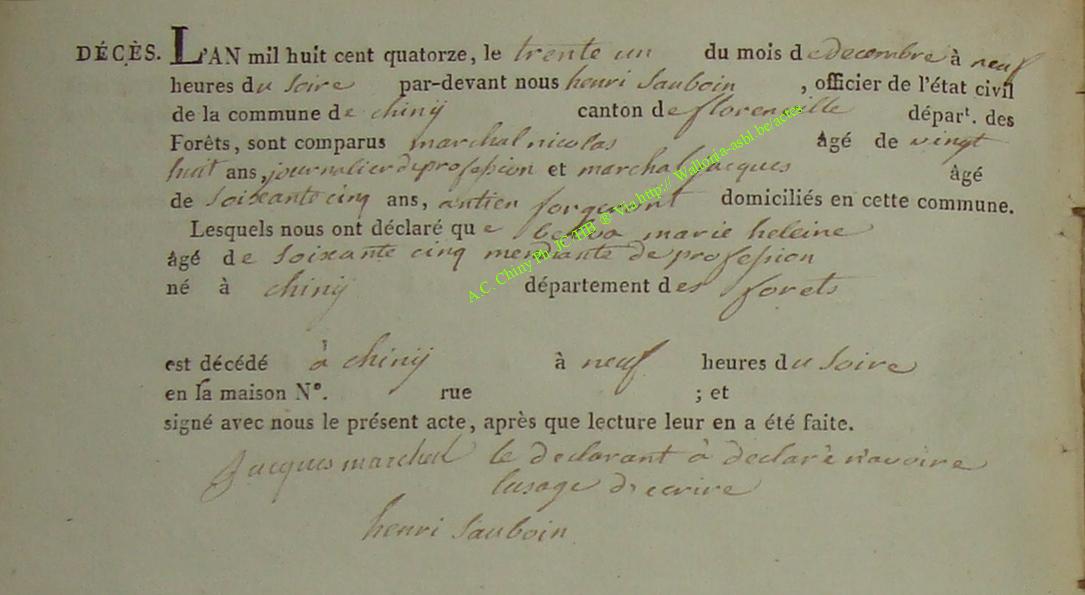 DÉCÈS. L'AN mil huit cent quatorze, le trente un du mois de decembre à neuf
heures du soire par-devant nous henri Sauboin , officier de l'état civil
de la commune de chinÿ canton de florenville départ. des
Forêts, sont comparus marchal nicolas âgé de vingt
huit ans, journalier de profession et marchal jacques âgé
de Soixante cinq ans, antien forgeront domiciliés en cette commune.
Lesquels nous ont déclaré que marie heleine
âgé de Soixante cinq mendiante de profession
né à chinÿ département des forets
est décédé à chinÿ à neuf heures du Soire
en la maison N°. rue ; et
signé avec nous le présent acte, après que lecture leur en a été faite.
Jacques marchal le declarant à declarè n'avoire
lusage decrire
henri Sauboin
A.C. Chiny Ph JC HB ® Via http:// Wallonia-asbl.be/actes